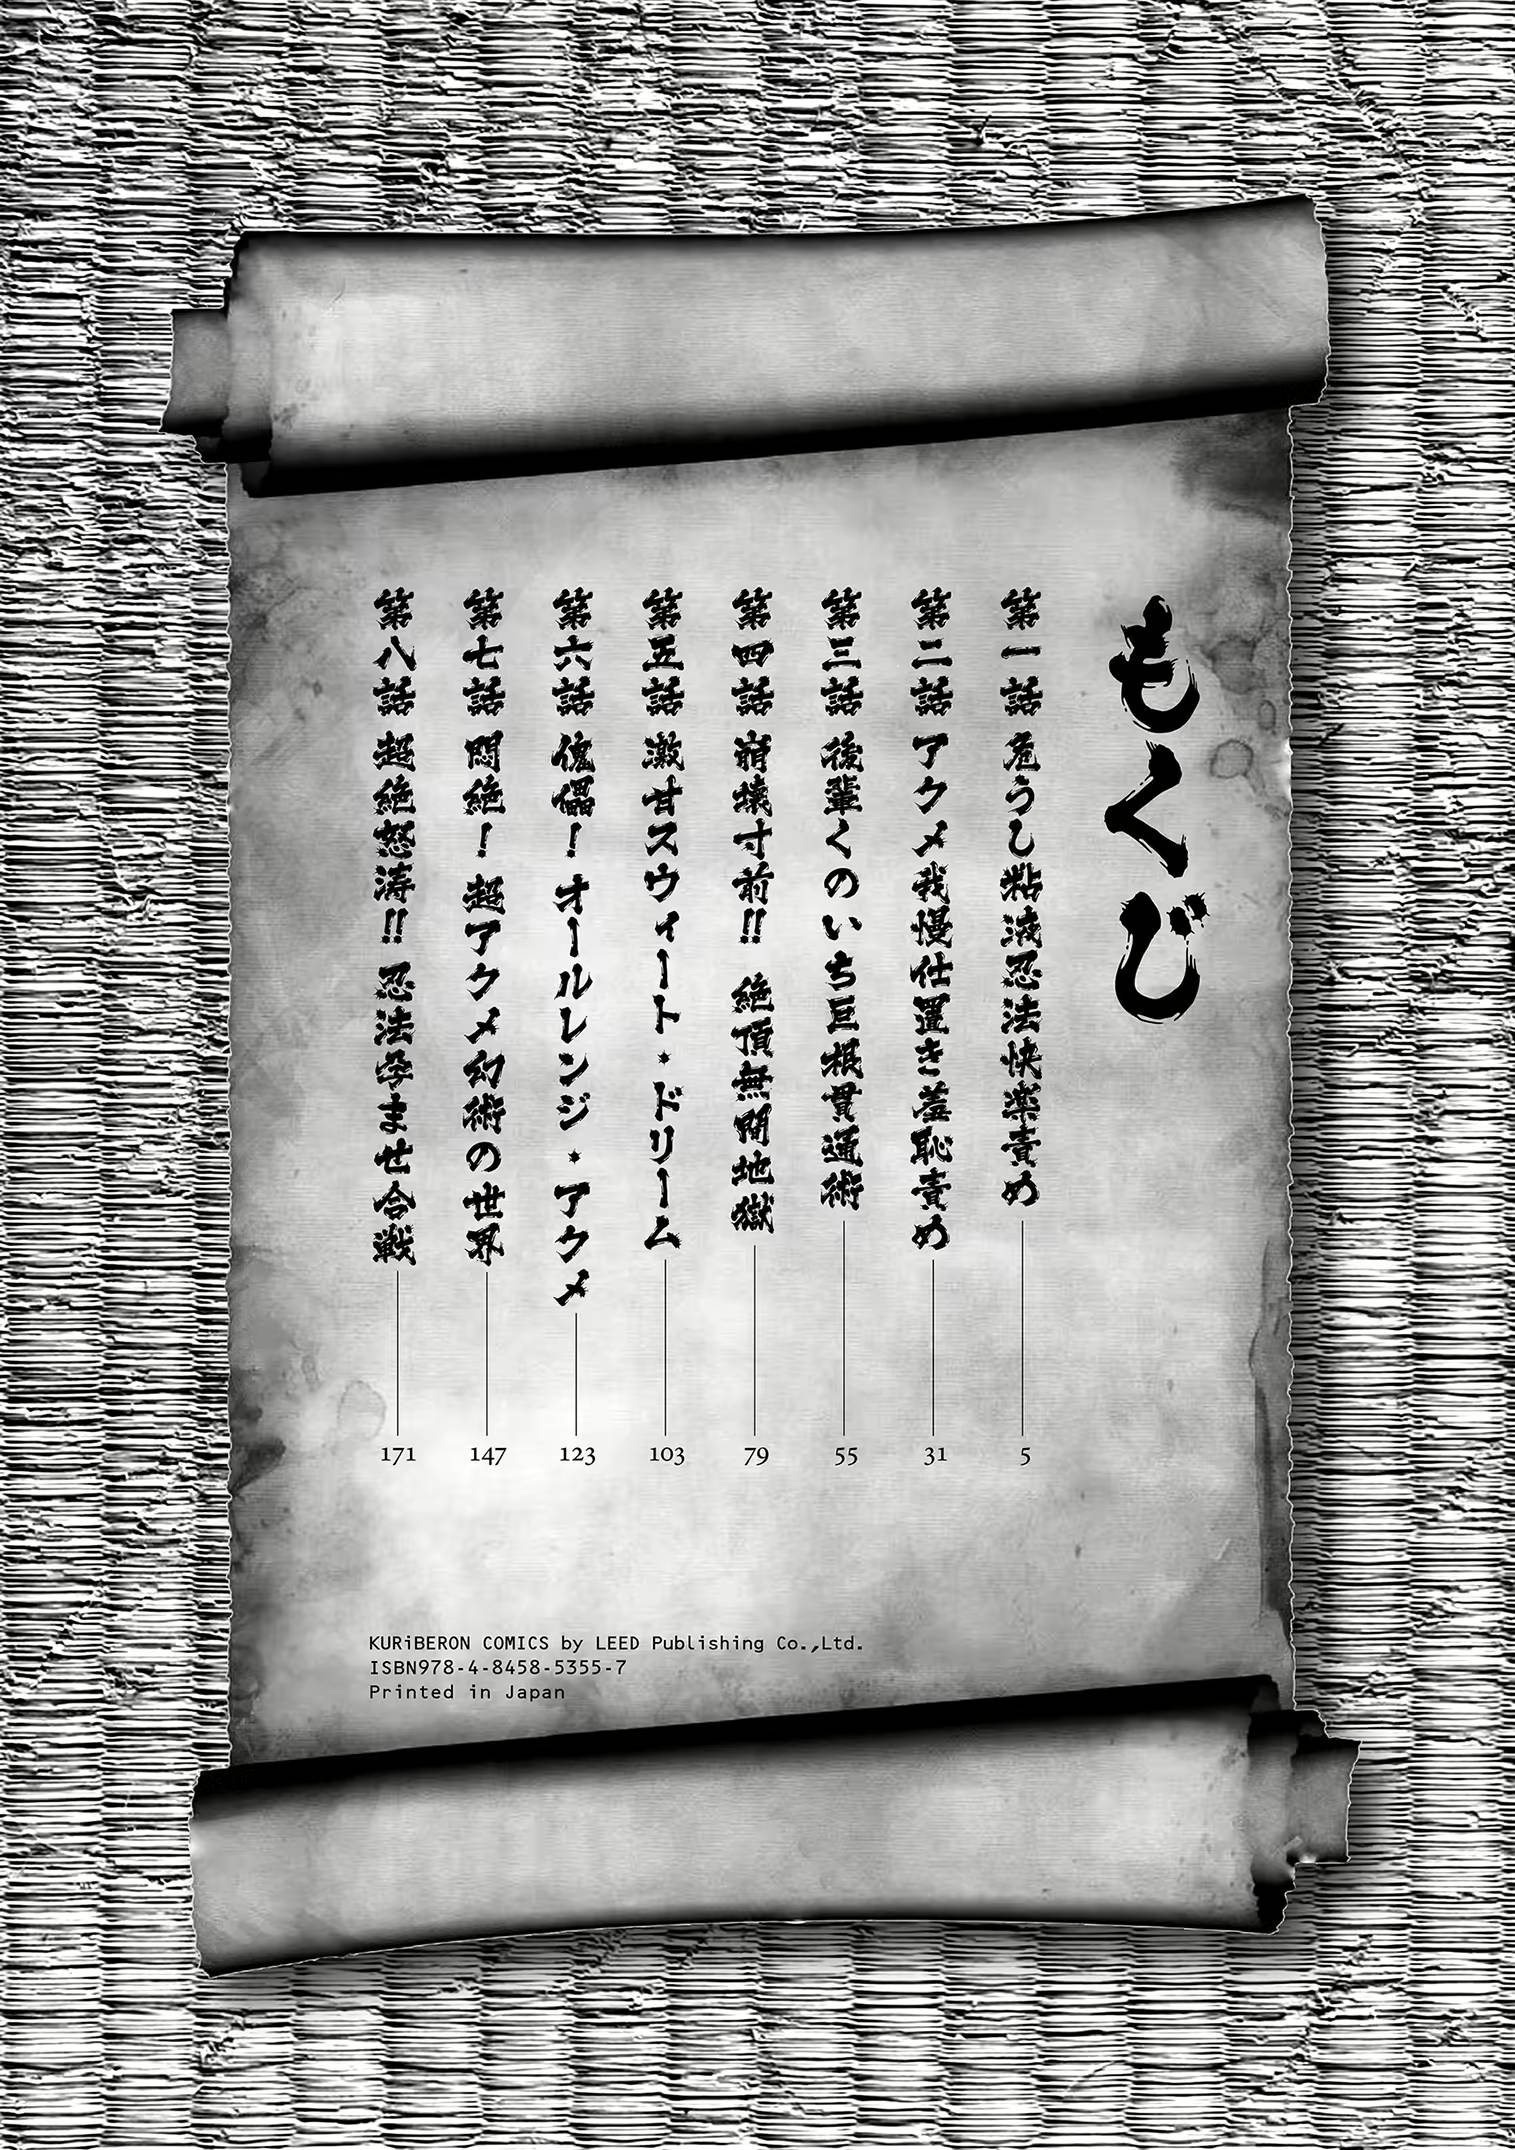 もくじ
第一話 危うし粘液忍法快楽責め 5
第二話 アクメ我慢仕置き羞恥責め 31
第三話 後輩くのいち巨根貫通術 55
第四話 崩壊寸前!! 絶頂無間地獄 79
第五話 激甘スウィート・ドリーム 103
第六話 傀儡！オールレンジ・アクメ 123
第七話 悶絶！超アクメ幻術の世界 147
第八話 超絶怒涛!! 忍法孕ませ合戦 171
KURiBERON COMICS by LEED Publishing Co.,Ltd.
ISBN978-4-8458-5355-7
Printed in Japan